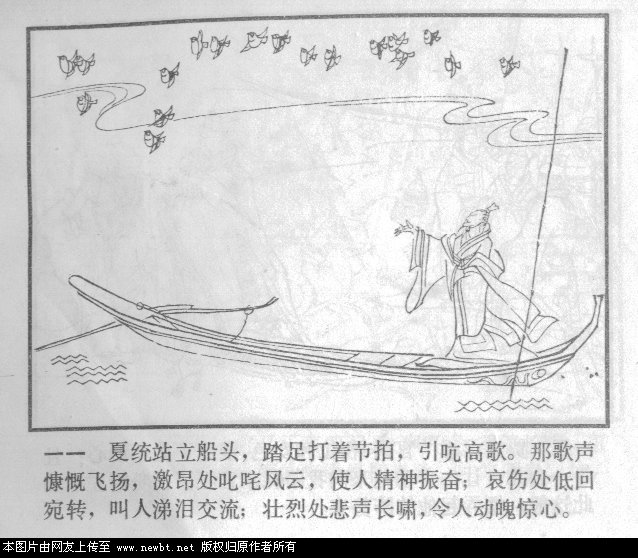 一一 夏统站立船头，踏足打着节拍，引吭高歌。那歌声
慷慨飞扬，激昂处叱咤风云，使人精神振奋；哀伤处低回
宛转，叫人涕泪交流；壮烈处悲声长啸，令人动魄惊心。
本图片由网友上传至 www.newbt.net 版权归原作者所有